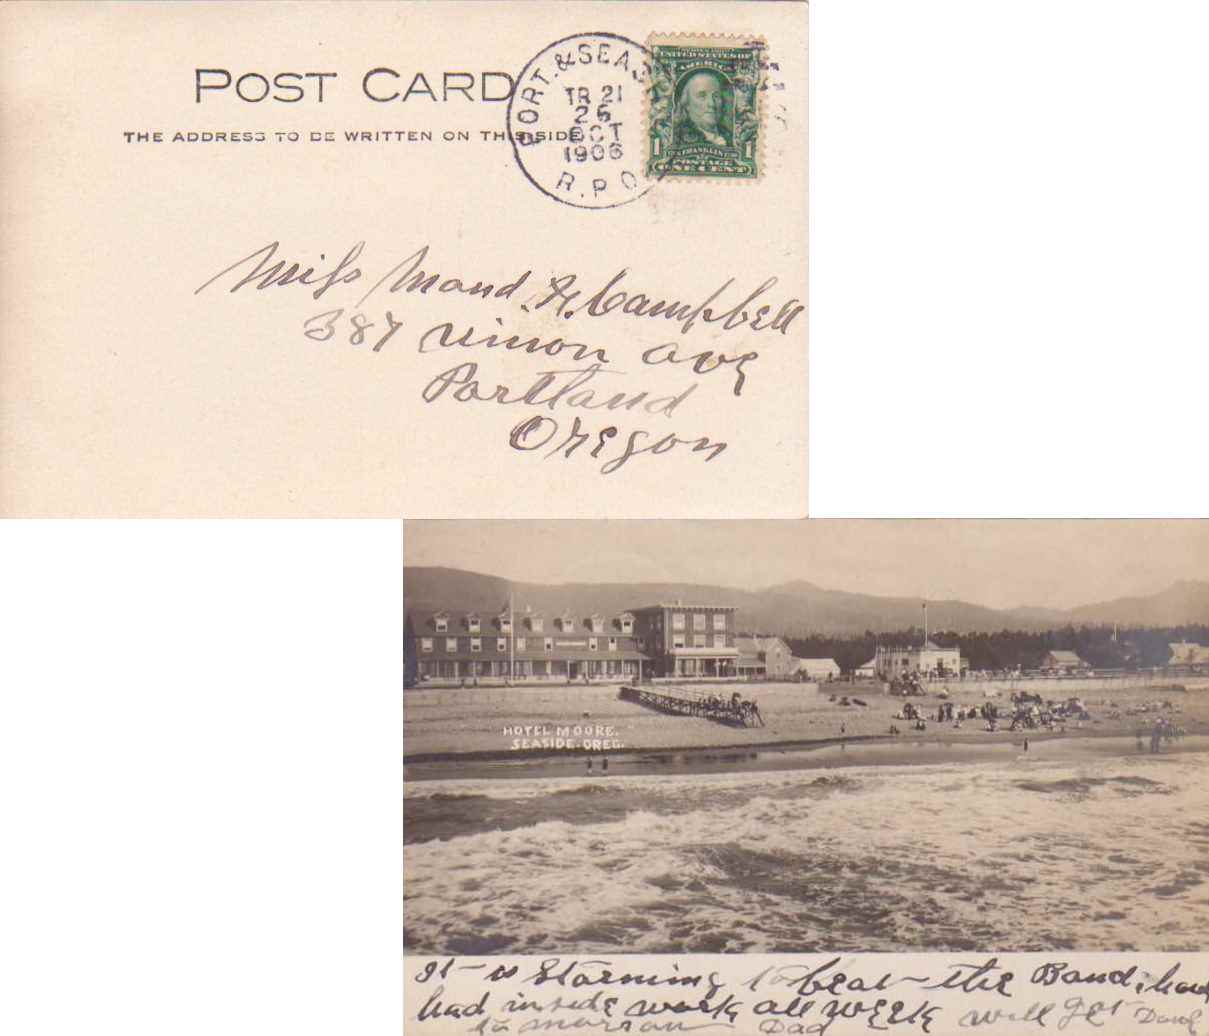 POST CARD
THE ADDRESS TO BE WRITTEN ON THIS SIDE
PORT. & SEASI
TR 21
26
OCT
1906
R.P.O
UNITED STATES OF
AMERICA
1 FRANKLIN 1
POSTAGE
ONE CENT
Miss Maud. H. Campbell
387 Union Ave
Portland
Oregon
HOTEL MOORE.
SEASIDE. OREG.
It is Storming to beat the Band. have
had inside work all week will get Done
to morrow Dad